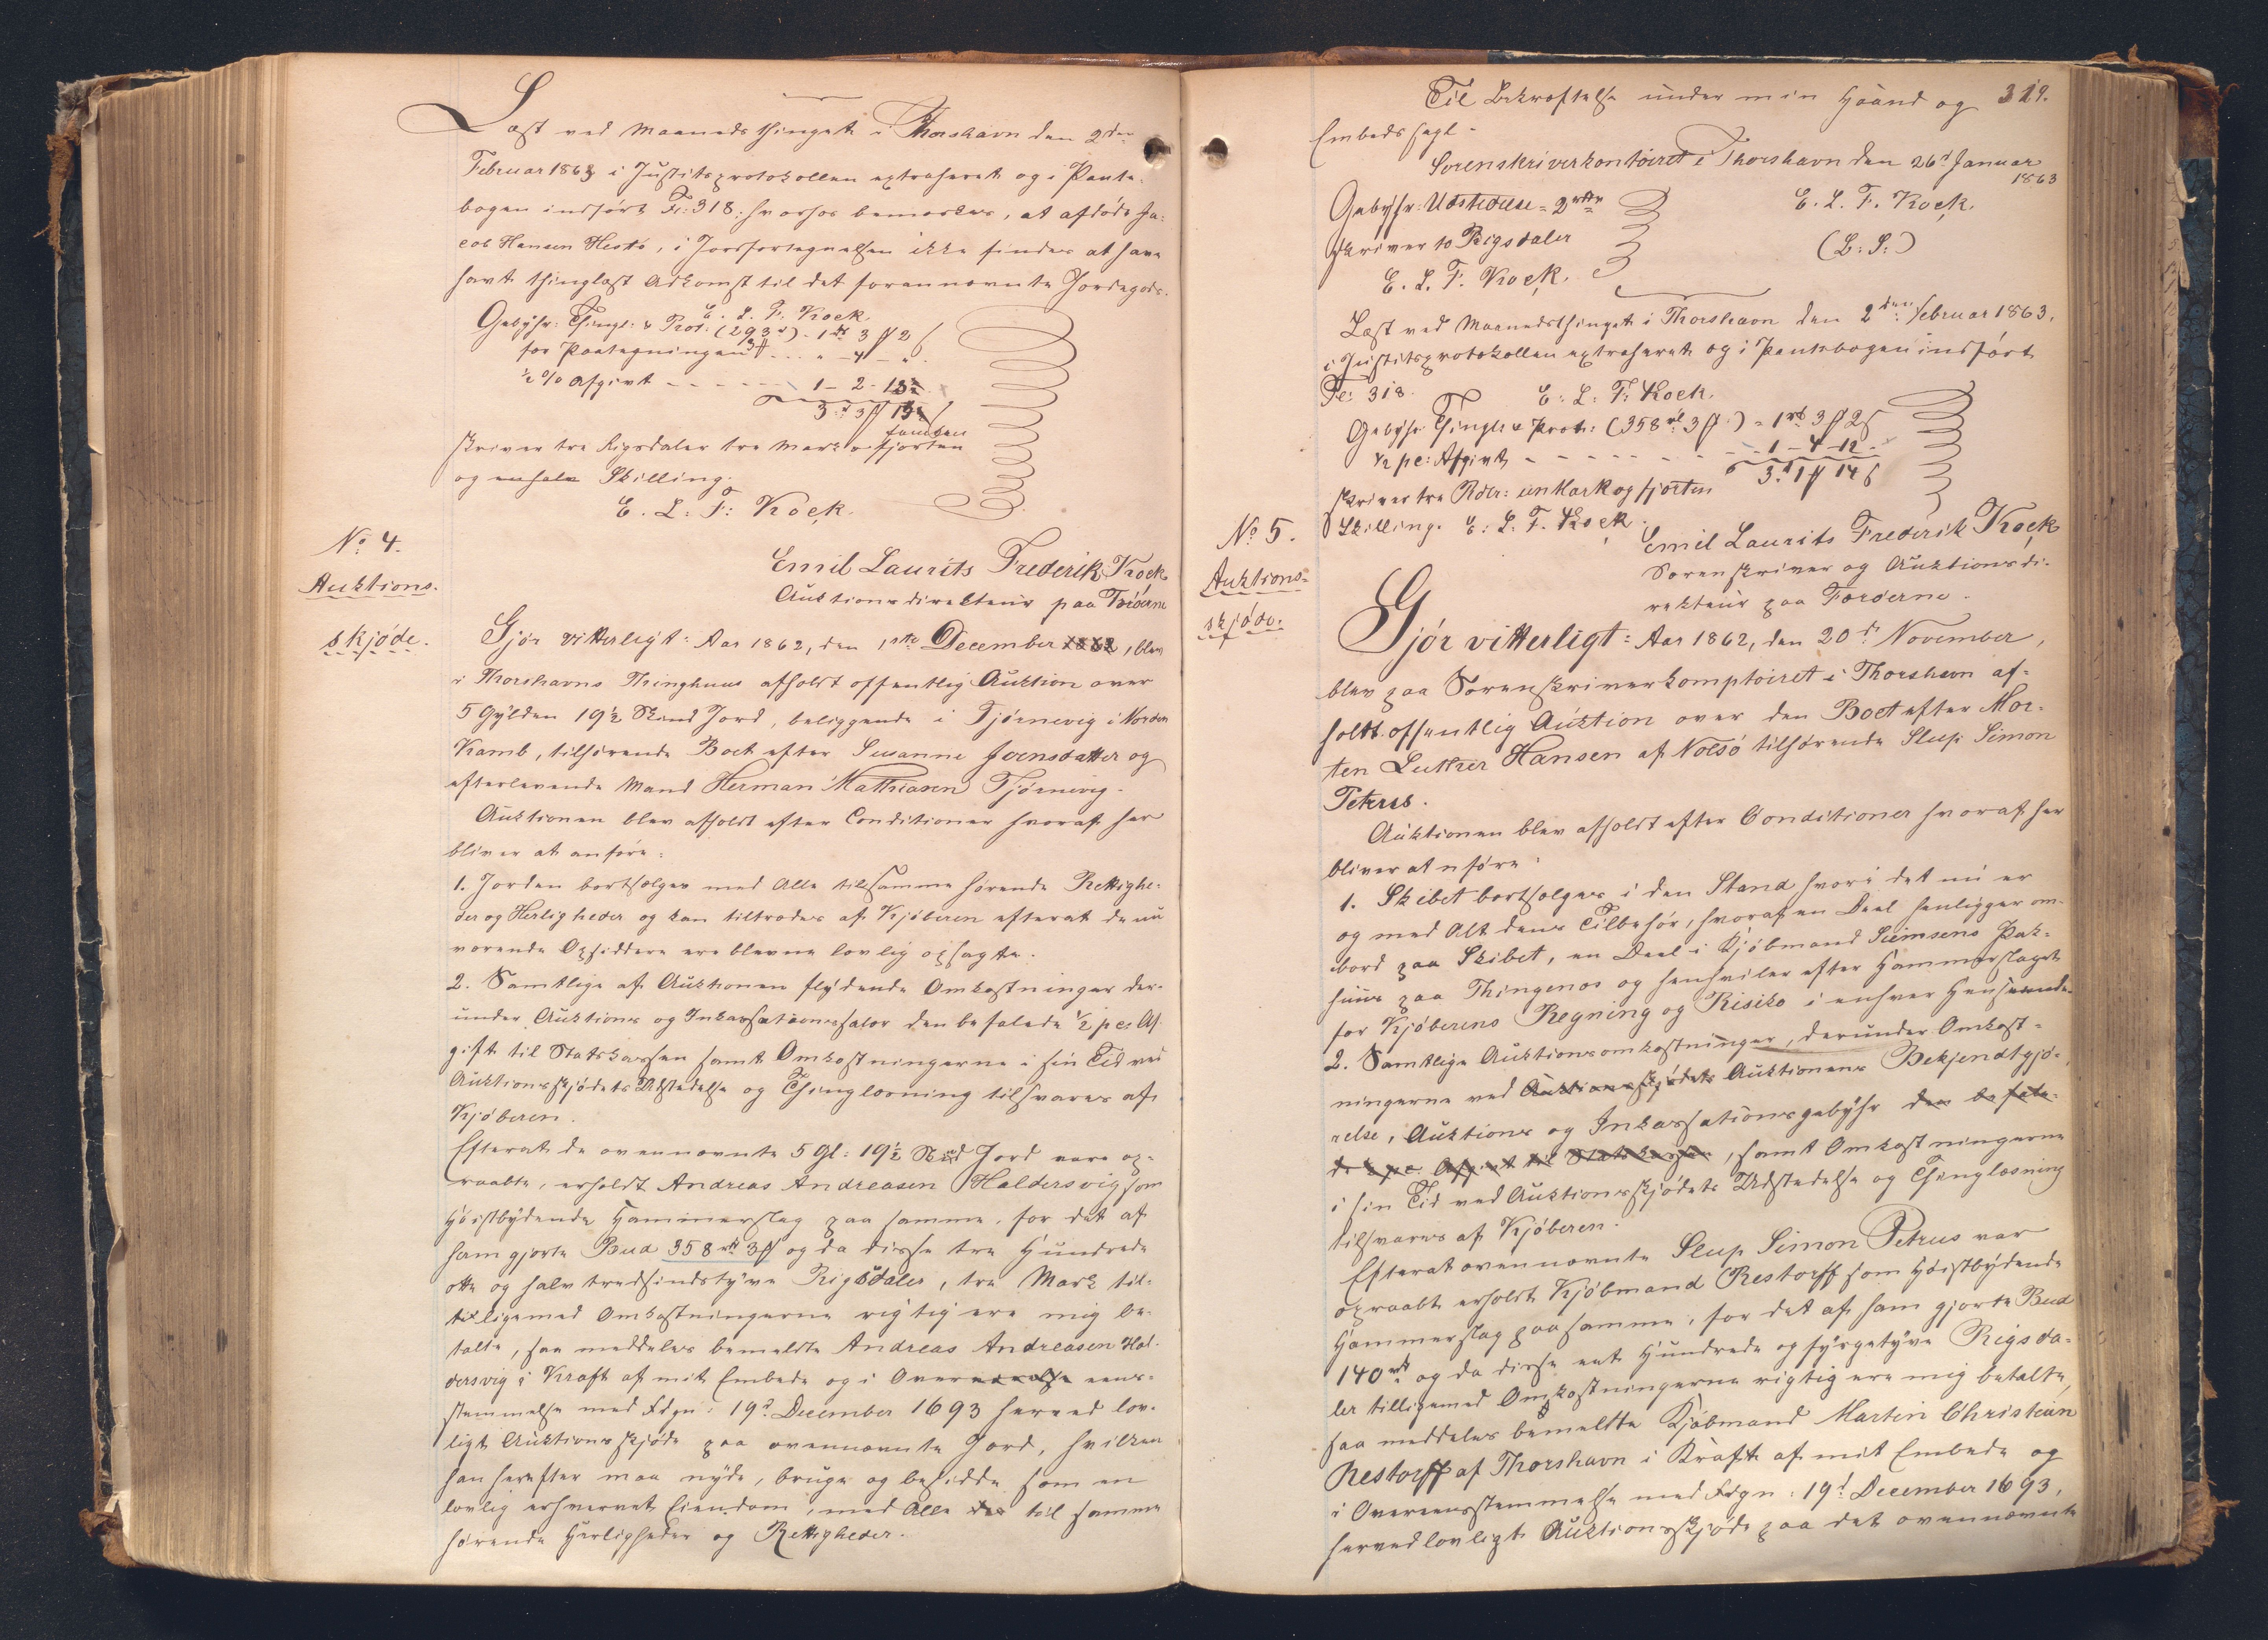 Læst ved Maanedsthinget i Thorshavn den 2den
Februar 1863 i Justitsprotokollen extraheret og i Pante-
bogen indført Fo: 318; hvorhos bemærkes, at afdøde Ja-
cob Hansen Hestø, i Jordfortegnelsen ikke findes at have
havt thinglæst Adkomst til det forannævnte Jordegods.
E. L. F. Kock.
Gebyhr: Thingl: & Prot: (293 rd) - 1 rd 3 ɱ 2 ß
for Paategningen 3 ɱ - - - " - 4 - "
½ % Afgivt - - - - - - 1 - 2 - 13½
3 rd 3 ɱ 15 ß
femten
skriver tre Rigsdaler tre Mark og fjorten
og en halv Skilling.
E. L. F: Kock.
No 4.
Auktions-
skjøde.
Emil Laurits Frederik Kock
Auktionsdirekteur paa Færøerne
Gjør vitterligt: Aar 1862, den 1ste December 1862, blev
i Thorshavns Thinghuus afholdt offentlig Auktion over
5 Gylden 19½ Skind Jord, beliggende i Tjørnevig i Norden
Kamb, tilhørende Boet efter Susanne Joensdatter og
efterlevende Mand Herman Mathiasen Tjørnevig.
Auktionen blev afholdt efter Conditioner hvoraf her
bliver at anføre:
1. Jorden bortsælges med Alle tilsamme hørende Rettighe-
der og Herligheder og kan tiltrædes af Kjøberen efterat de nu
værende Opsiddere ere blevne lovlig opsagte.
2. Samtlige af Auktionen flydende Omkostninger der-
under Auktions og Inkassationssalær den befalede ½ pc: Af-
gift til Statskassen samt Omkostningerne i sin Tid ved
Auktionsskjødets Udstedelse og Thinglæsning tilsvares af
Kjøberen.
Efterat de ovennævnte 5 Gl: 19½ Skd Jord vare op-
raabte, erholdt Andreas Andreasen Haldersvig som
Høistbydende Hammerslag paa samme, for det af
ham gjorte Bud 358 rd 3 ɱ og da disse tre Hundrede
otte og halvtredsindstyve Rigsdaler, tre Mark til-
tilligemed Omkostningerne rigtig ere mig be-
talte, saa meddeles bemeldte Andreas Andreasen Hal-
dersvig i Kraft af mit Embede og i Over eens-
stemmelse med Fdgn: 19d December 1693 herved lov-
ligt Auktionsskjøde paa ovennævnte Jord, hvilken
han herefter maa nyde, bruge og besidde som en
lovlig erhvervet Eiendom, med Alle der til samme
hørende Herligheder og Rettigheder.
319.
Til Bekræftelse under min Haand og
Embedssegl.
Sorenskriverkontoiret i Thorshavn den 26d Januar
1863
Gebyhr: Udstedelse = 2 rdlr
E. L. F. Kock.
skriver to Rigsdaler
(L: S:)
E. L. F. Kock.
Læst ved Maanedsthinget i Thorshavn den 2den Februar 1863,
i Justitsprotokollen extraheret og i Pantebogen indført
Fo: 318.
E. L. F. Kock.
Gebyhr Thingl: & Prot: (358 rd 3 ɱ) = 1 rd 3 ɱ 2 ß
½ pc: Afgivt - - - - - - - 1 - 4 - 12 -
3 rd 1 ɱ 14 ß
skriver tre Rdlr: en Mark og fjorten
Skilling. E. L. F. Kock.
No 5.
Auktions-
skjøde.
Emil Laurits Frederik Kock
Sorenskriver og Auktionsdi-
rekteur paa Færøerne.
Gjør vitterligt: Aar 1862, den 20d November,
blev paa Sorenskriverkomptoiret i Thorshavn af-
holdt offentlig Auktion over den Boet efter Mor-
ten Luther Hansen af Nolsø tilhørende Slup Simon
Petrus.
Auktionen blev afholdt efter Conditioner hvoraf her
bliver at nføre:
1. Skibet bortsælges i den Stand hvori det nu er
og med Alt dens Tilbehør, hvoraf en Deel henligger om-
bord paa Skibet, en Deel i Kjøbmand Siemsens Pak-
huus paa Thingenæs og henhviler efter Hammerslaget
for Kjøberens Regning og Risiko i enhver Henseende.
2. Samtlige Auktionsomkostninger, derunder Omkost-
ningerne ved Auktionsskjødets Auktionens Bekjendtgjø-
relse, Auktions og Inkassationsgebyhr den befale-
de ½ pc. Afgivt til Statskassen, samt Omkostningerne
i sin Tid ved Auktionsskjødets Udstedelse og Thinglæsning
tilsvares af Kjøberen.
Efterat ovennævnte Slup Simon Petrus var
opraabt erholdt Kjøbmand Restorff som Høistbydende
Hammerslag paa samme, for det af ham gjorte Bud
140 rd og da disse eet Hundrede og fyrgetyve Rigsda-
ler tilligemed Omkostningerne rigtig ere mig betalte,
saa meddeles bemeldte Kjøbmand Martin Christian
Restorff af Thorshavn i Kraft af mit Embede og
i Overeensstemmelse med Fdgn: 19d December 1693,
herved lovligt Auktionsskjøde paa det ovennævnte